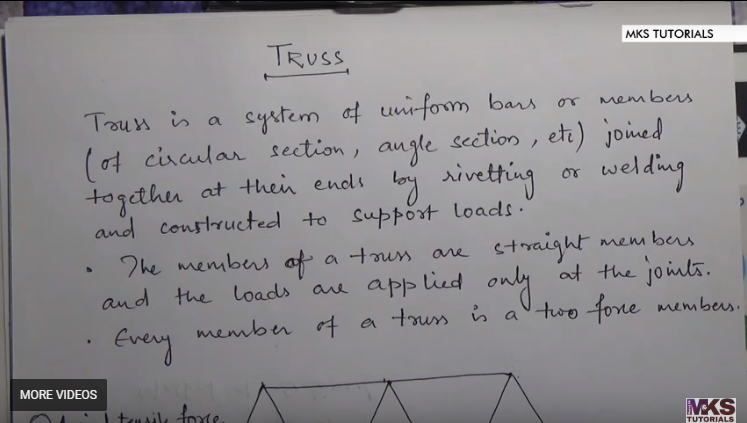 MKS TUTORIALS
TRUSS
Truss is a system of uniform bars or members
(of circular section, angle section, etc) joined
together at their ends by rivetting or welding
and constructed to support loads.
• The members of a truss are straight members
and the loads are applied only at the joints.
• Every member of a truss is a two force members.
MORE VIDEOS
tensile force
MKS
TUTORIALS